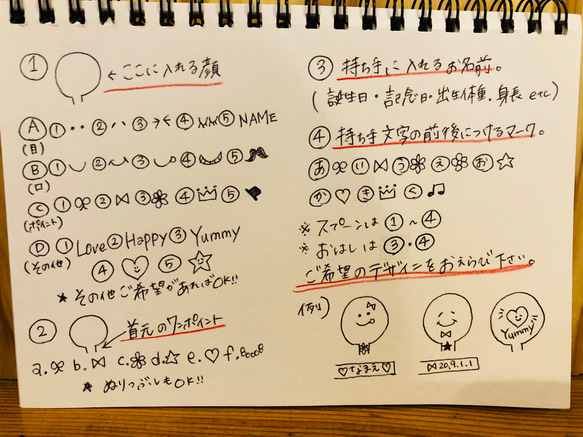 ① ←ここに入れる顔
Ⓐ ① ② ③ ④ ⑤ NAME
(目)
Ⓑ ① ② ③ ④ ⑤
(口)
Ⓒ ① ② ③ ④ ⑤
(ポイント)
Ⓓ ① Love ② Happy ③ Yummy
(その他) ④ ♡ ⑤ ☆
★ その他ご希望があればOK!!
② 首元のワンポイント
a. b. c. d.☆ e.♡ f.
★ ぬりつぶしもOK!!
③ 持ち手に入れるお名前。
(誕生日・記念日・出生体重、身長 etc)
④ 持ち手文字の前後につけるマーク。
あ い う え お ☆
か ♡ き く ♫
※ スプーンは ①~④
※ おはしは ③・④
ご希望のデザインをおえらび下さい。
例)
Yummy
♡なまえ♡
20.9.1.1